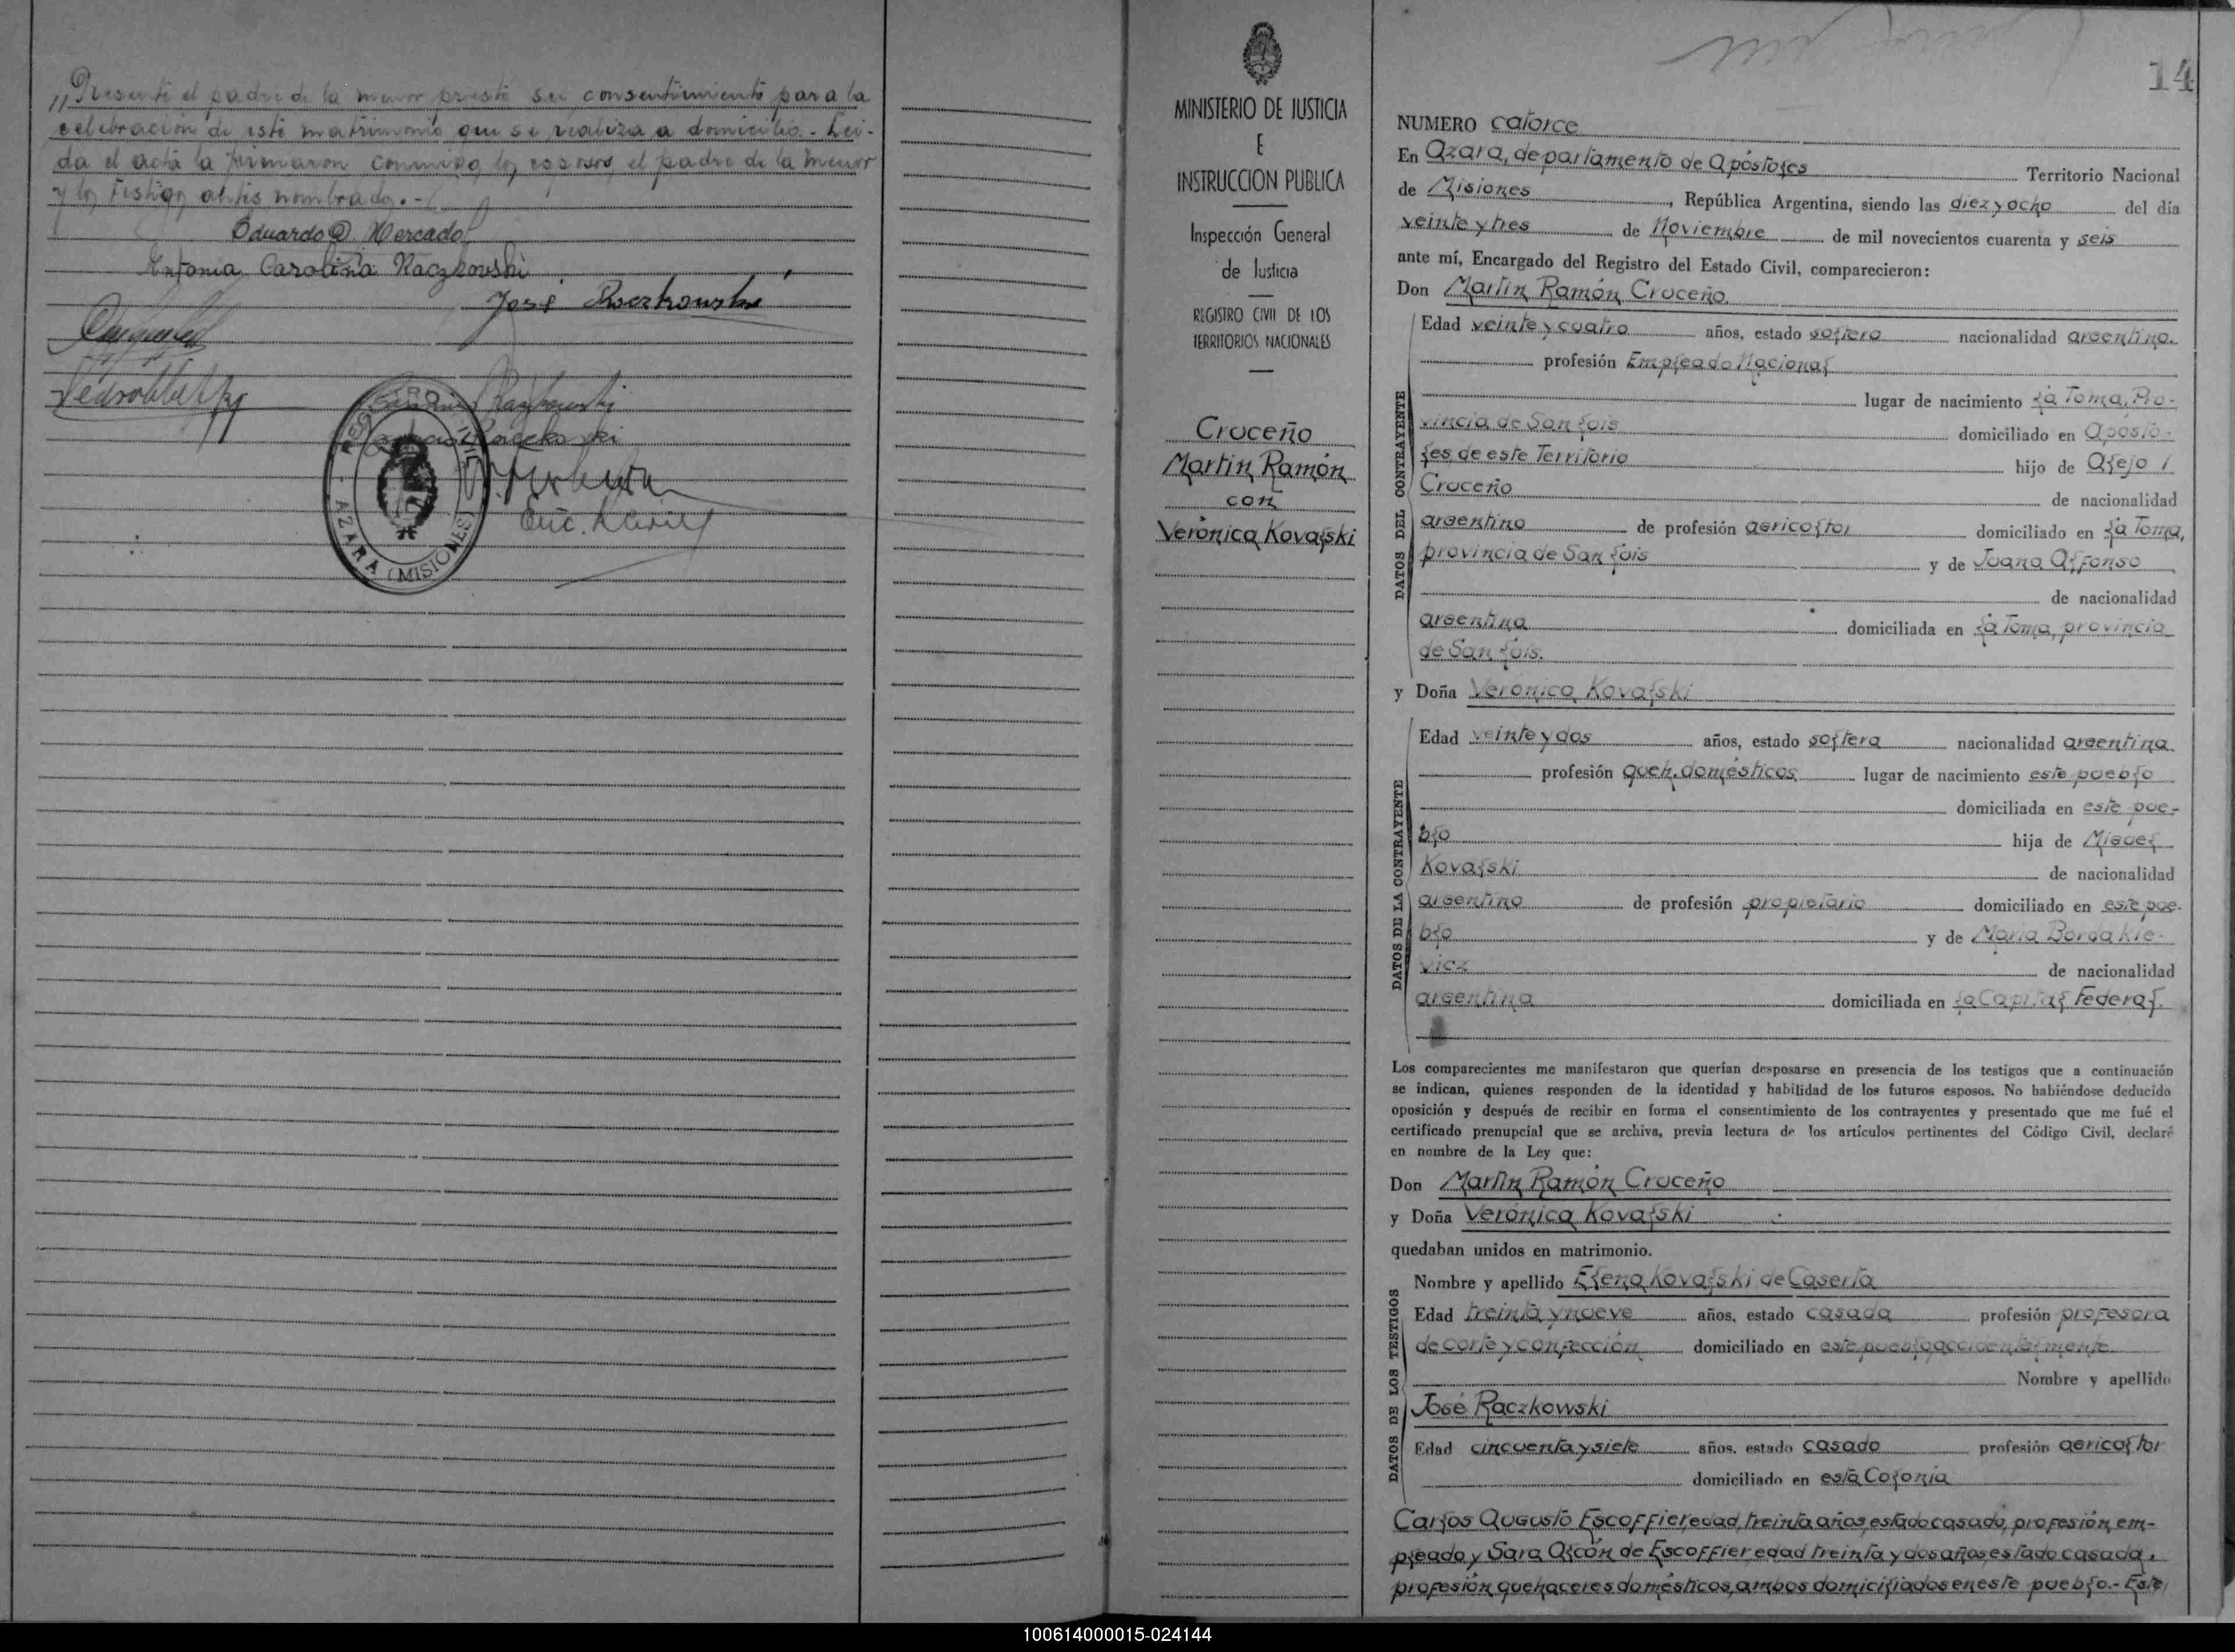 "Presente el padre de la menor prestó su consentimiento para la
celebración de este matrimonio que se realiza a domicilio.- Leí-
da el acta la firmaron conmigo, los esposos, el padre de la menor
y los testigos antes nombrados.-
Eduardo D. Mercado
Antonia Carolina Raczkowski
José Raczkowski
REGISTRO CIVIL
- AZARA (MISIONES) -
MINISTERIO DE JUSTICIA
E
INSTRUCCION PUBLICA
Inspección General
de Justicia
REGISTRO CIVIL DE LOS
TERRITORIOS NACIONALES
Cruceño
Martín Ramón
con
Verónica Kovalski
14
NUMERO catorce
En Azara, departamento de Apóstoles Territorio Nacional
de Misiones, República Argentina, siendo las diez y ocho del día
veinte y tres de Noviembre de mil novecientos cuarenta y seis
ante mí, Encargado del Registro del Estado Civil, comparecieron:
Don Martín Ramón Cruceño.
DATOS DEL CONTRAYENTE
Edad veinte y cuatro años, estado soltero nacionalidad argentino.
profesión Empleado Nacional
lugar de nacimiento La Toma, Pro-
vincia de San Luis domiciliado en Apósto-
les de este Territorio hijo de Alejo I
Cruceño de nacionalidad
argentino de profesión agricoltor domiciliado en La Toma,
provincia de San Luis y de Juana Alfonso
de nacionalidad
argentina domiciliada en La Toma, provincia
de San Luis.
y Doña Verónica Kovalski
DATOS DE LA CONTRAYENTE
Edad veinte y dos años, estado soltera nacionalidad argentina.
profesión queh. domésticos lugar de nacimiento este pueblo
domiciliada en este pue-
blo hija de Miguel
Kovalski de nacionalidad
argentino de profesión propietario domiciliado en este pue-
blo y de María Bordakie-
vicz de nacionalidad
argentina domiciliada en la Capital Federal.
Los comparecientes me manifestaron que querían desposarse en presencia de los testigos que a continuación
se indican, quienes responden de la identidad y habilidad de los futuros esposos. No habiéndose deducido
oposición y después de recibir en forma el consentimiento de los contrayentes y presentado que me fué el
certificado prenupcial que se archiva, previa lectura de los artículos pertinentes del Código Civil, declaré
en nombre de la Ley que:
Don Martín Ramón Cruceño
y Doña Verónica Kovalski
quedaban unidos en matrimonio.
DATOS DE LOS TESTIGOS
Nombre y apellido Elena Kovalski de Caserta
Edad treinta y nueve años, estado casada profesión profesora
de corte y confección domiciliado en este pueblo accidentalmente.
Nombre y apellido
José Raczkowski
Edad cincuenta y siete años, estado casado profesión agricoltor
domiciliado en esta Colonia
Carlos Augusto Escoffier, edad, treinta años, estado casado, profesión, em-
pleado y Sara Alcón de Escoffier, edad treinta y dos años estado casada,
profesión quehaceres domésticos, ambos domiciliados en este pueblo.- Este
100614000015-024144